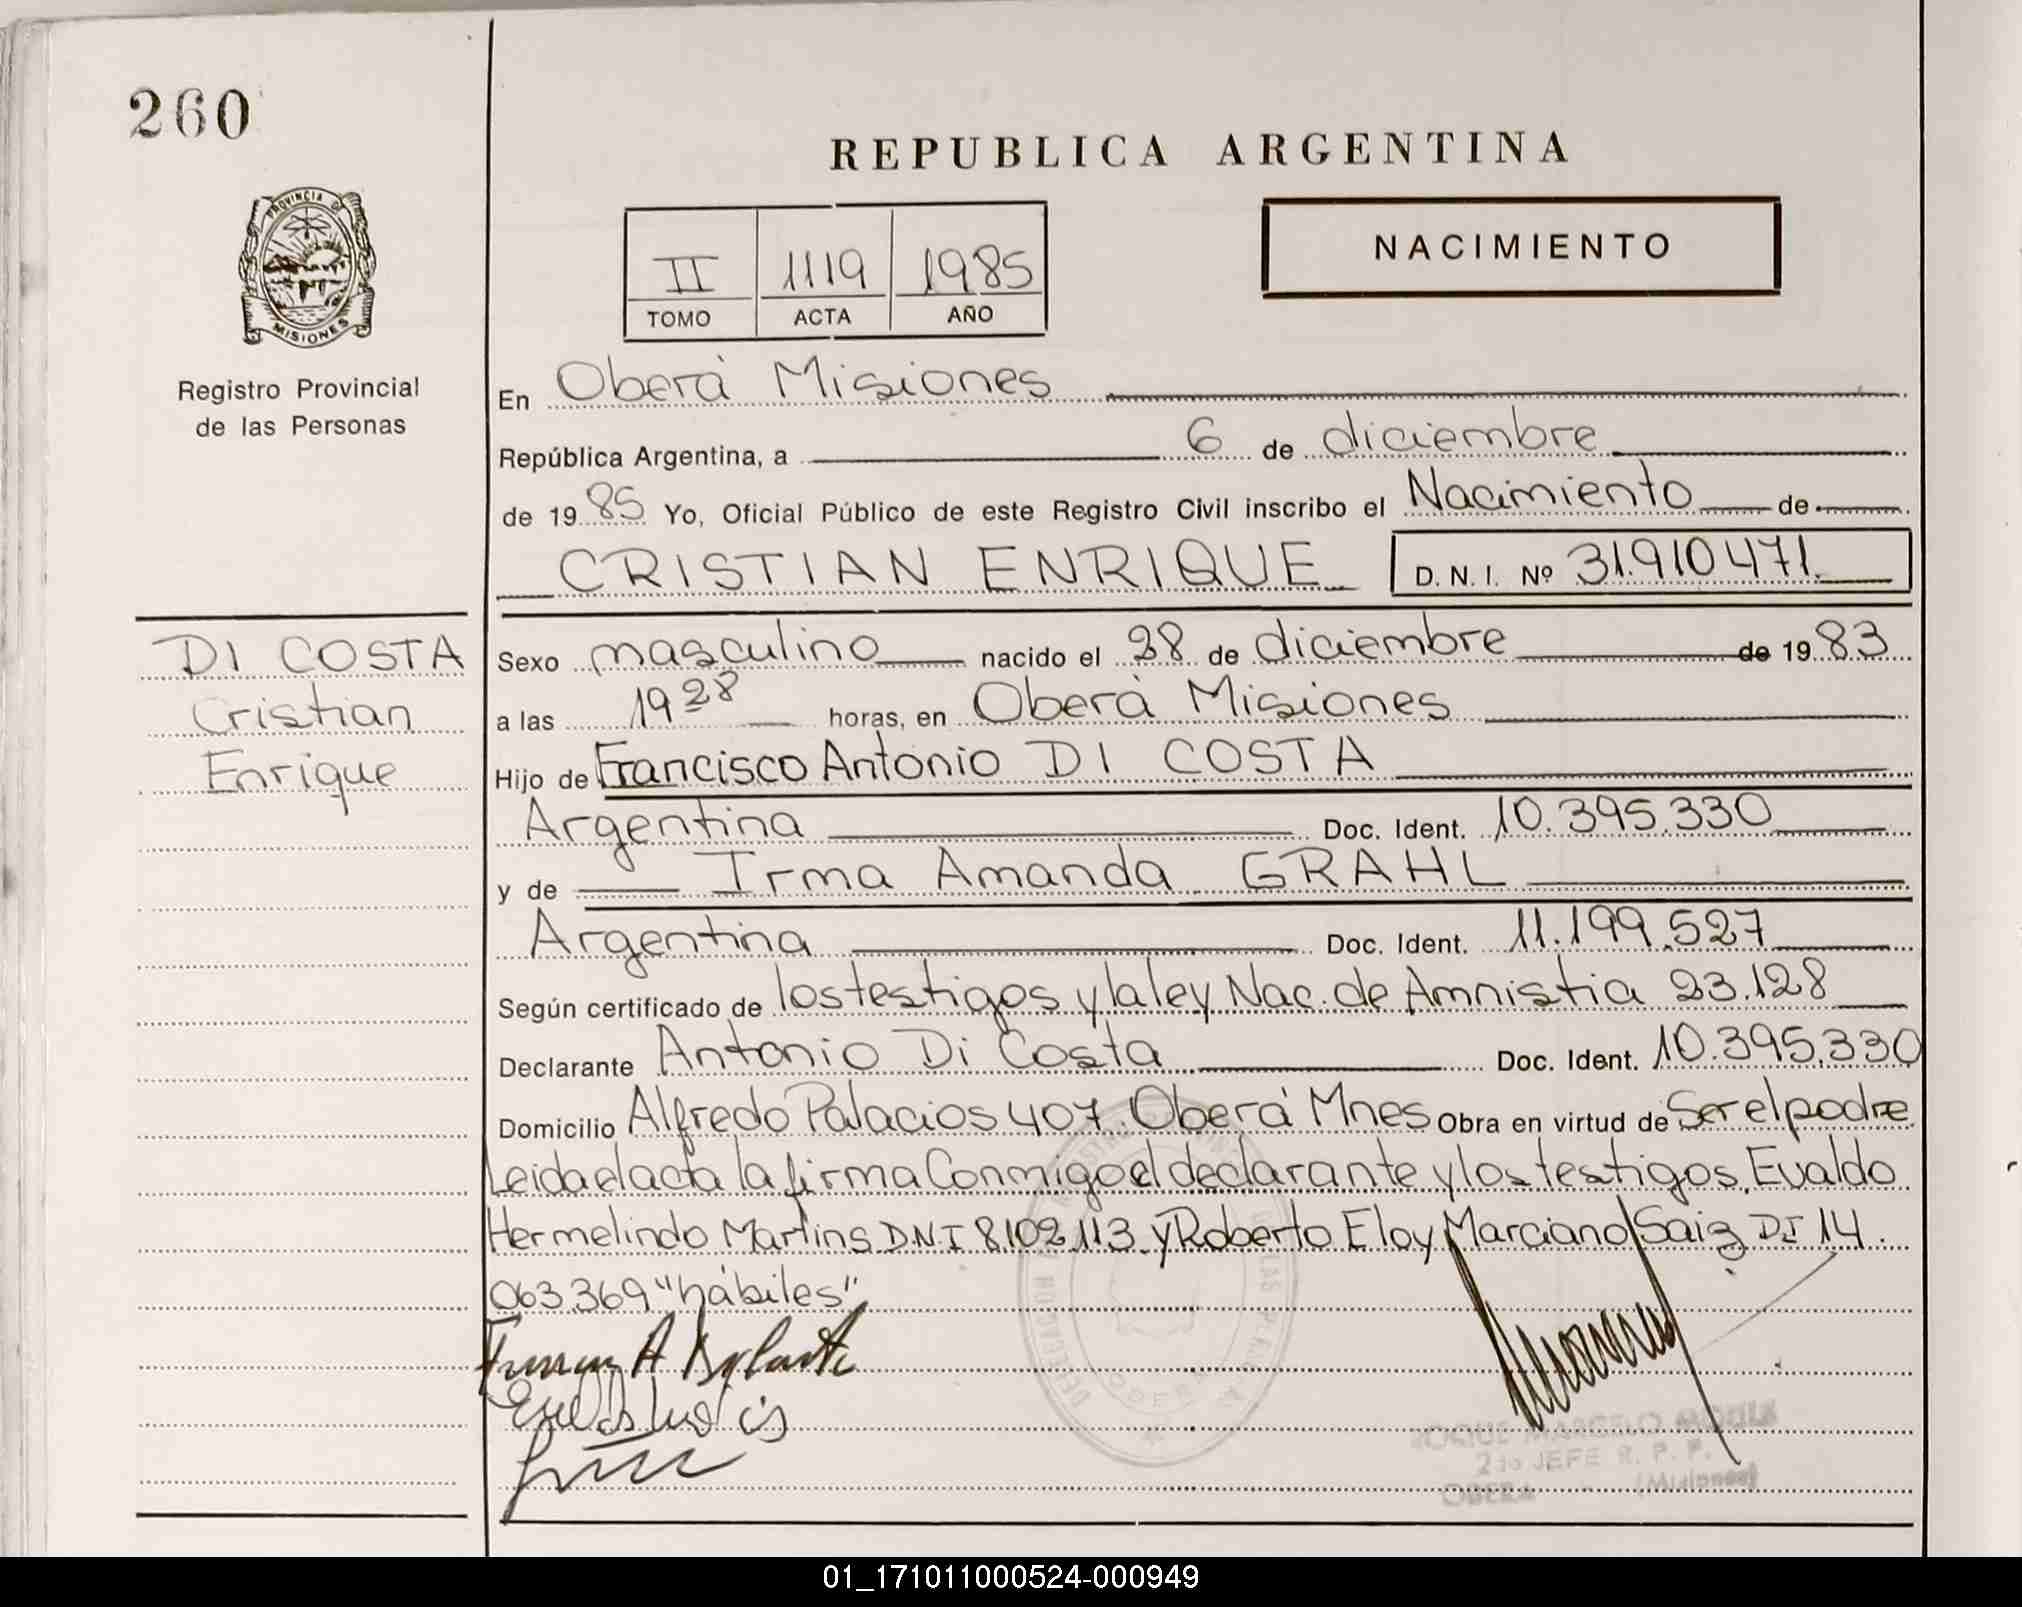 260
REPUBLICA ARGENTINA
PROVINCIA DE
MISIONES
II 1119 1985
TOMO ACTA AÑO
NACIMIENTO
Registro Provincial
de las Personas
En Oberá Misiones
República Argentina, a 6 de diciembre
de 1985 Yo, Oficial Público de este Registro Civil inscribo el Nacimiento de
CRISTIAN ENRIQUE D. N. I. Nº 31.910471.
DI COSTA
Cristian
Enrique
Sexo masculino nacido el 28 de diciembre de 1983
a las 19 28 horas, en Oberá Misiones
Hijo de Francisco Antonio DI COSTA
Argentina Doc. Ident. 10.395.330
y de Irma Amanda GRAHL
Argentina Doc. Ident. 11.199.527
Según certificado de los testigos y la ley Nac. de Amnistia 23.128
Declarante Antonio Di Costa Doc. Ident. 10.395.330
Domicilio Alfredo Palacios 407. Oberá Mnes Obra en virtud de Ser el padre
Leida el acta la firma Conmigo el declarante y los testigos, Evaldo
Hermelindo Martins D.N.I 8102.113. y Roberto Eloy Marciano Saiz DI 14.
063.369 "hábiles"
DELEGACION
OBERA
ROQUE MARCELO
2do JEFE R. P. P.
OBERA (Misiones)
01_171011000524-000949